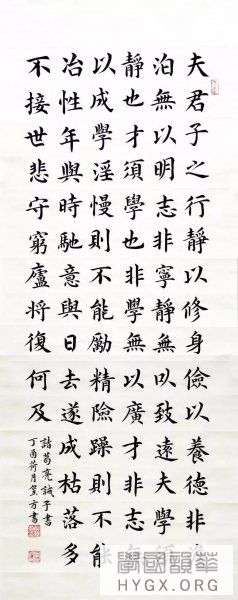 夫君子之行靜以修身儉以養德非
泊無以明志非寧靜無以致遠夫學
靜也才須學也非學無以廣才非志
以成學淫慢則不能勵精險躁則不能
冶性年與時馳意與日去遂成枯落多
不接世悲守窮廬將復何及
諸葛亮誡子書
丁酉荷月方書
學國韻華
HYGX.ORG